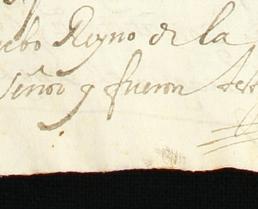 Reyno de la
señor y fueron